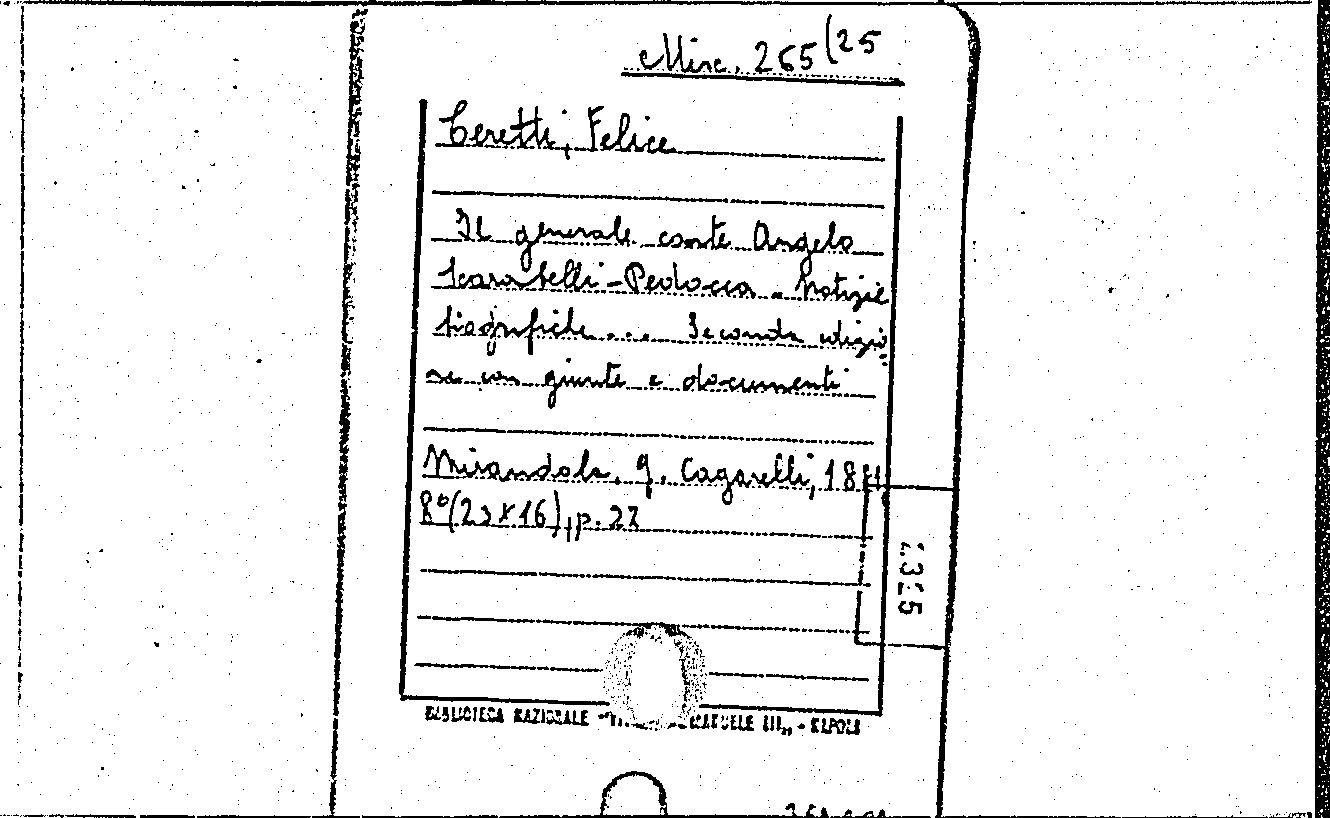 Misc. 265(25
Ceretti, Felice
Il generale conte Angelo
Scarabelli-Pedocca. Notizie
biografiche... Seconda edizio
ne con giunte e documenti
Mirandola, G. Cagarelli,
8°(23x16), p. 27
BIBLIOTECA NAZIONALE EMANUELE III„ - NAPOLI